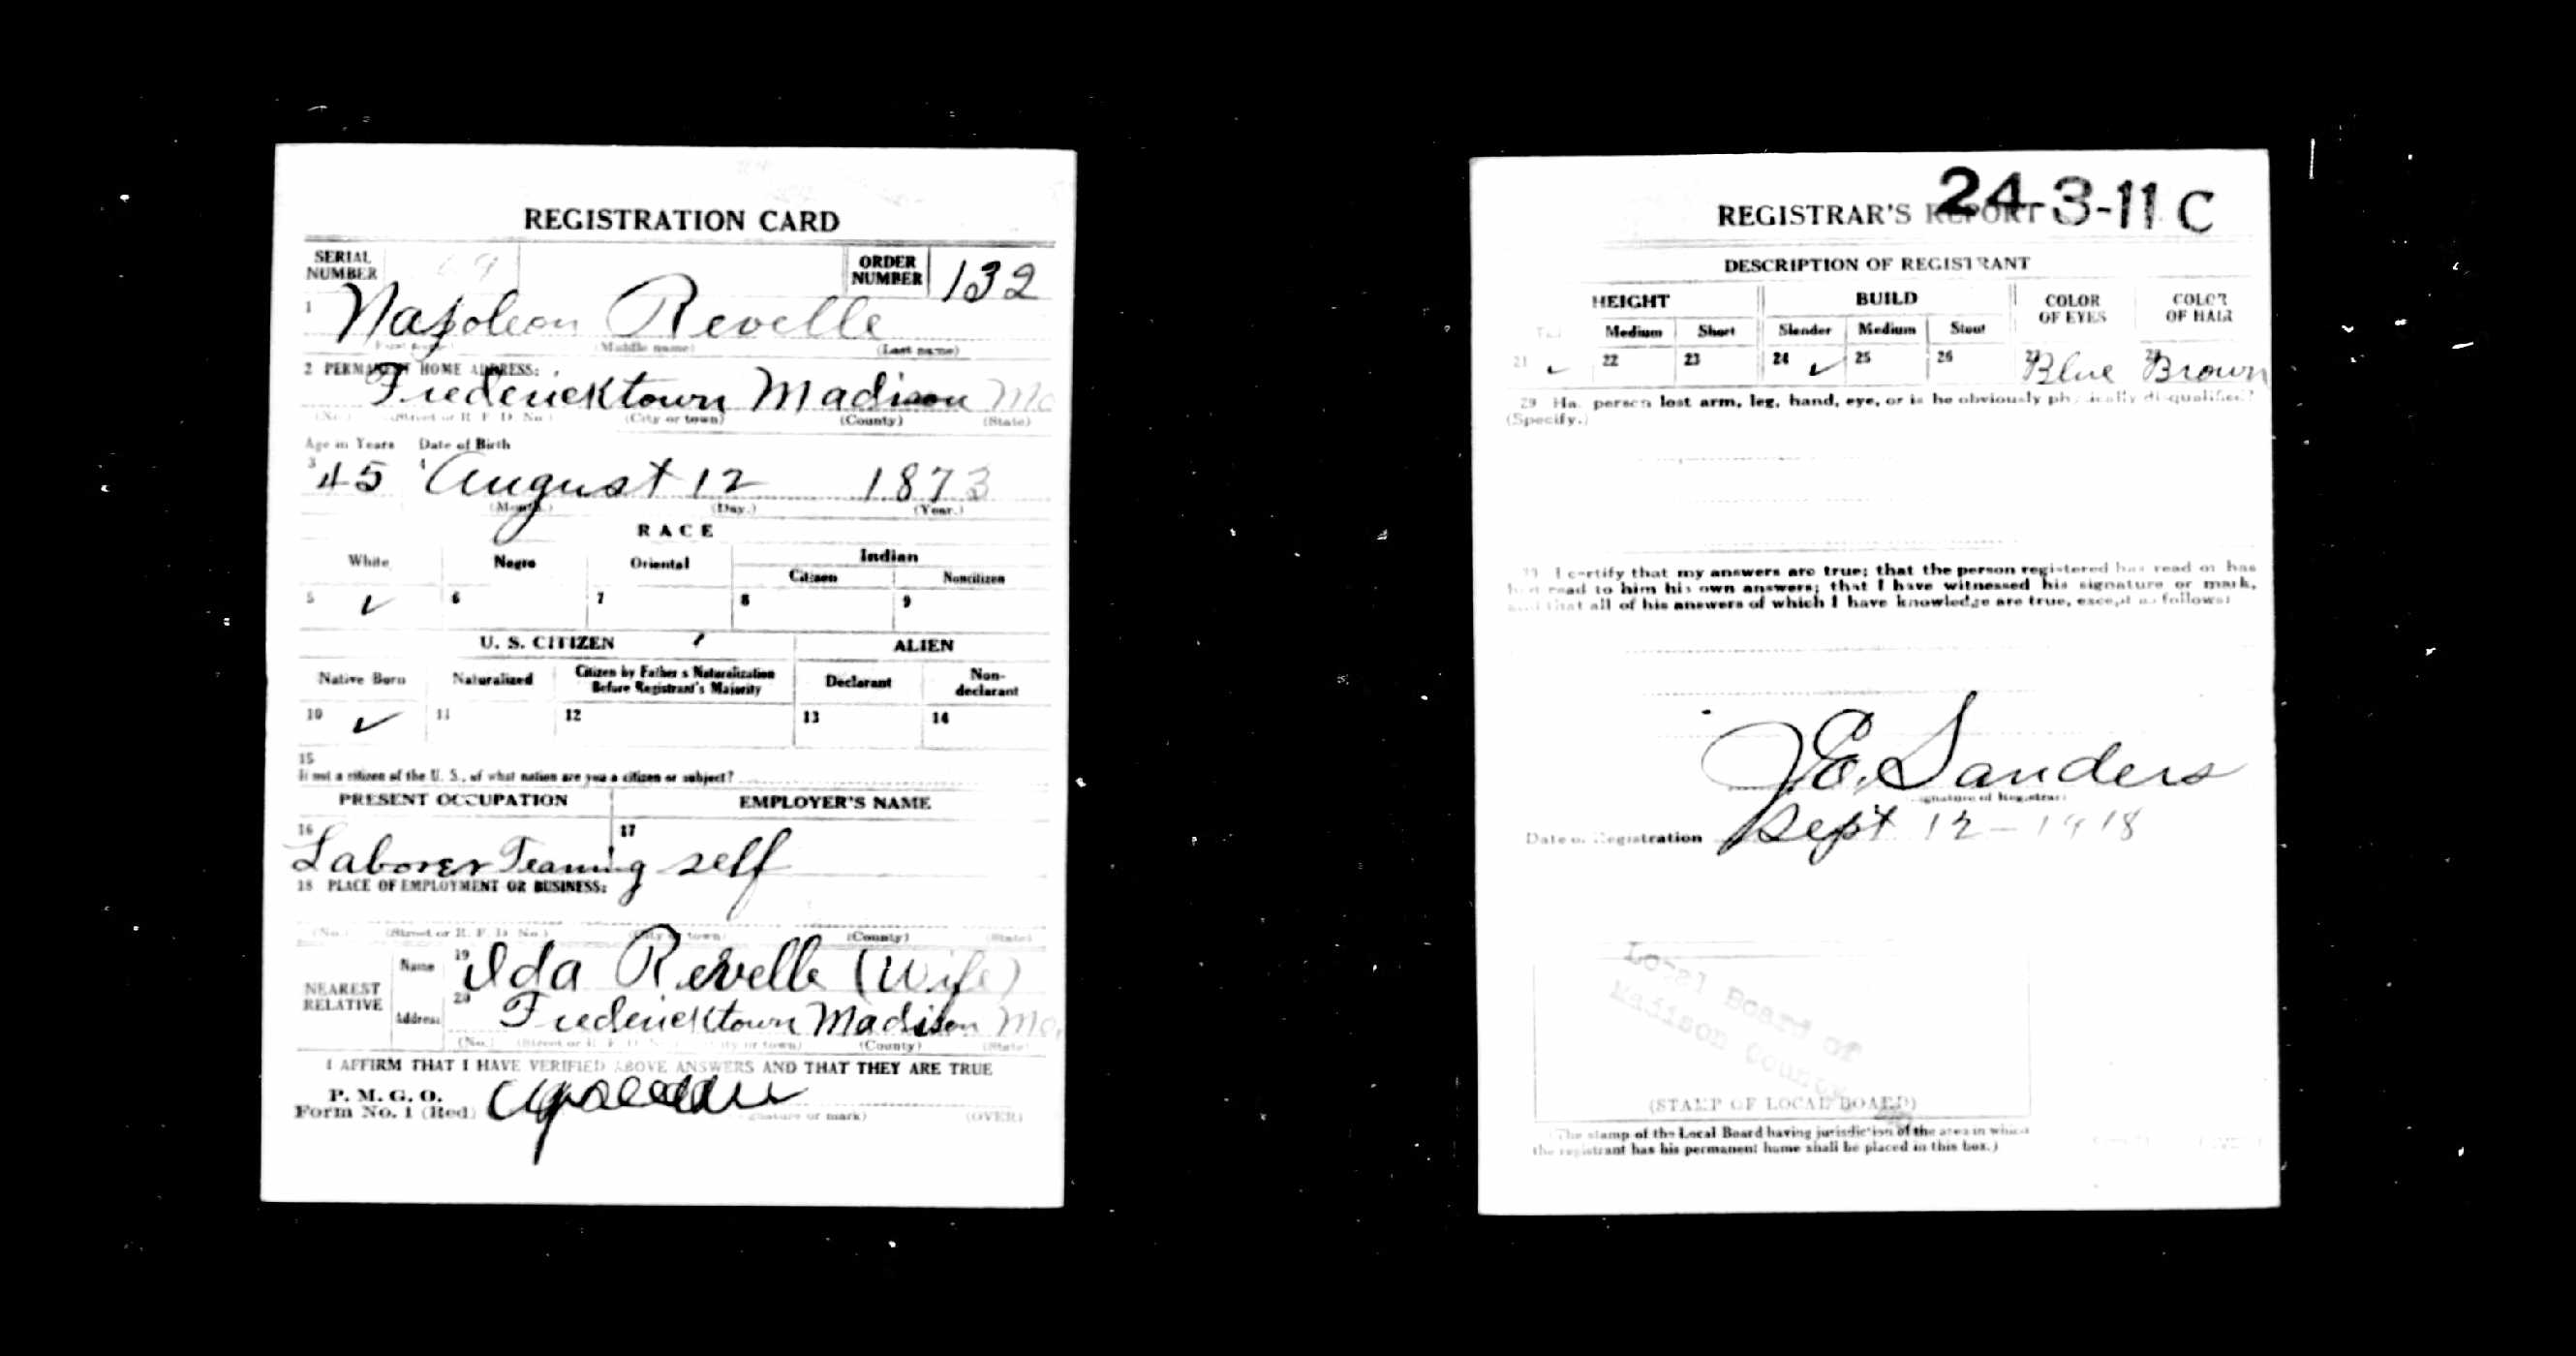 REGISTRATION CARD
SERIAL NUMBER 69
ORDER NUMBER 132
1 Napoleon Revelle
(First name) (Middle name) (Last name)
2 PERMANENT HOME ADDRESS:
Fredericktown Madison Mo
(No.) (Street or R. F. D. No.) (City or town) (County) (State)
Age in Years Date of Birth
3 45 4 August 12 1873
(Month.) (Day.) (Year.)
RACE
White Negro Oriental Indian
Citizen Noncitizen
5 ✓ 6 7 8 9
U. S. CITIZEN ALIEN
Native Born Naturalized Citizen by Father's Naturalization Before Registrant's Majority Declarant Non-declarant
10 ✓ 11 12 13 14
15
If not a citizen of the U. S., of what nation are you a citizen or subject?
PRESENT OCCUPATION EMPLOYER'S NAME
16 17
Laborer Teaming self
18 PLACE OF EMPLOYMENT OR BUSINESS:
(No.) (Street or R. F. D. No.) (City or town) (County) (State)
NEAREST RELATIVE
Name 19 Ida Revelle (Wife)
Address 20 Fredericktown Madison Mo.
(No.) (Street or R. F. D. No.) (City or town) (County) (State)
I AFFIRM THAT I HAVE VERIFIED ABOVE ANSWERS AND THAT THEY ARE TRUE
P. M. G. O.
Form No. 1 (Red)
(Signature or mark) (OVER)
24-3-11 C
REGISTRAR'S REPORT
DESCRIPTION OF REGISTRANT
HEIGHT BUILD COLOR OF EYES COLOR OF HAIR
Tall Medium Short Slender Medium Stout
21 ✓ 22 23 24 ✓ 25 26 27 Blue 28 Brown
29 Has person lost arm, leg, hand, eye, or is he obviously physically disqualified?
(Specify.)
30 I certify that my answers are true; that the person registered has read or has
had read to him his own answers; that I have witnessed his signature or mark,
and that all of his answers of which I have knowledge are true, except as follows:
J.E. Sanders
(Signature of Registrar)
Date of Registration Sept 12-1918
Local Board of
Madison County
(STAMP OF LOCAL BOARD)
(The stamp of the Local Board having jurisdiction of the area in which
the registrant has his permanent home shall be placed in this box.)